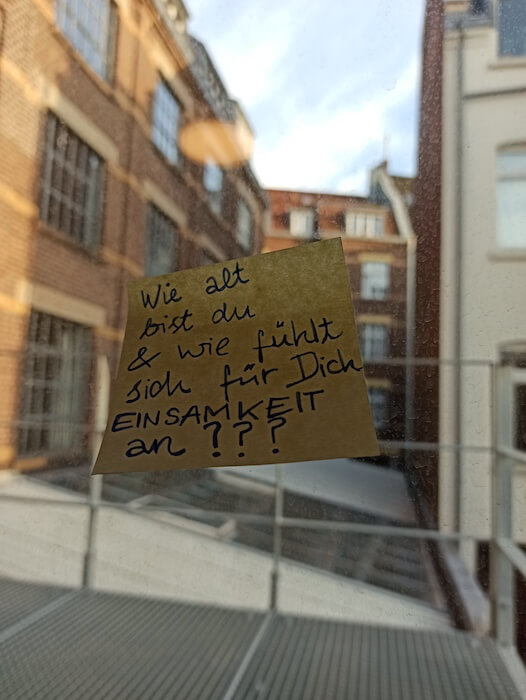 Wie alt
bist du
& wie fühlt
sich für Dich
EINSAMKEIT
an ???